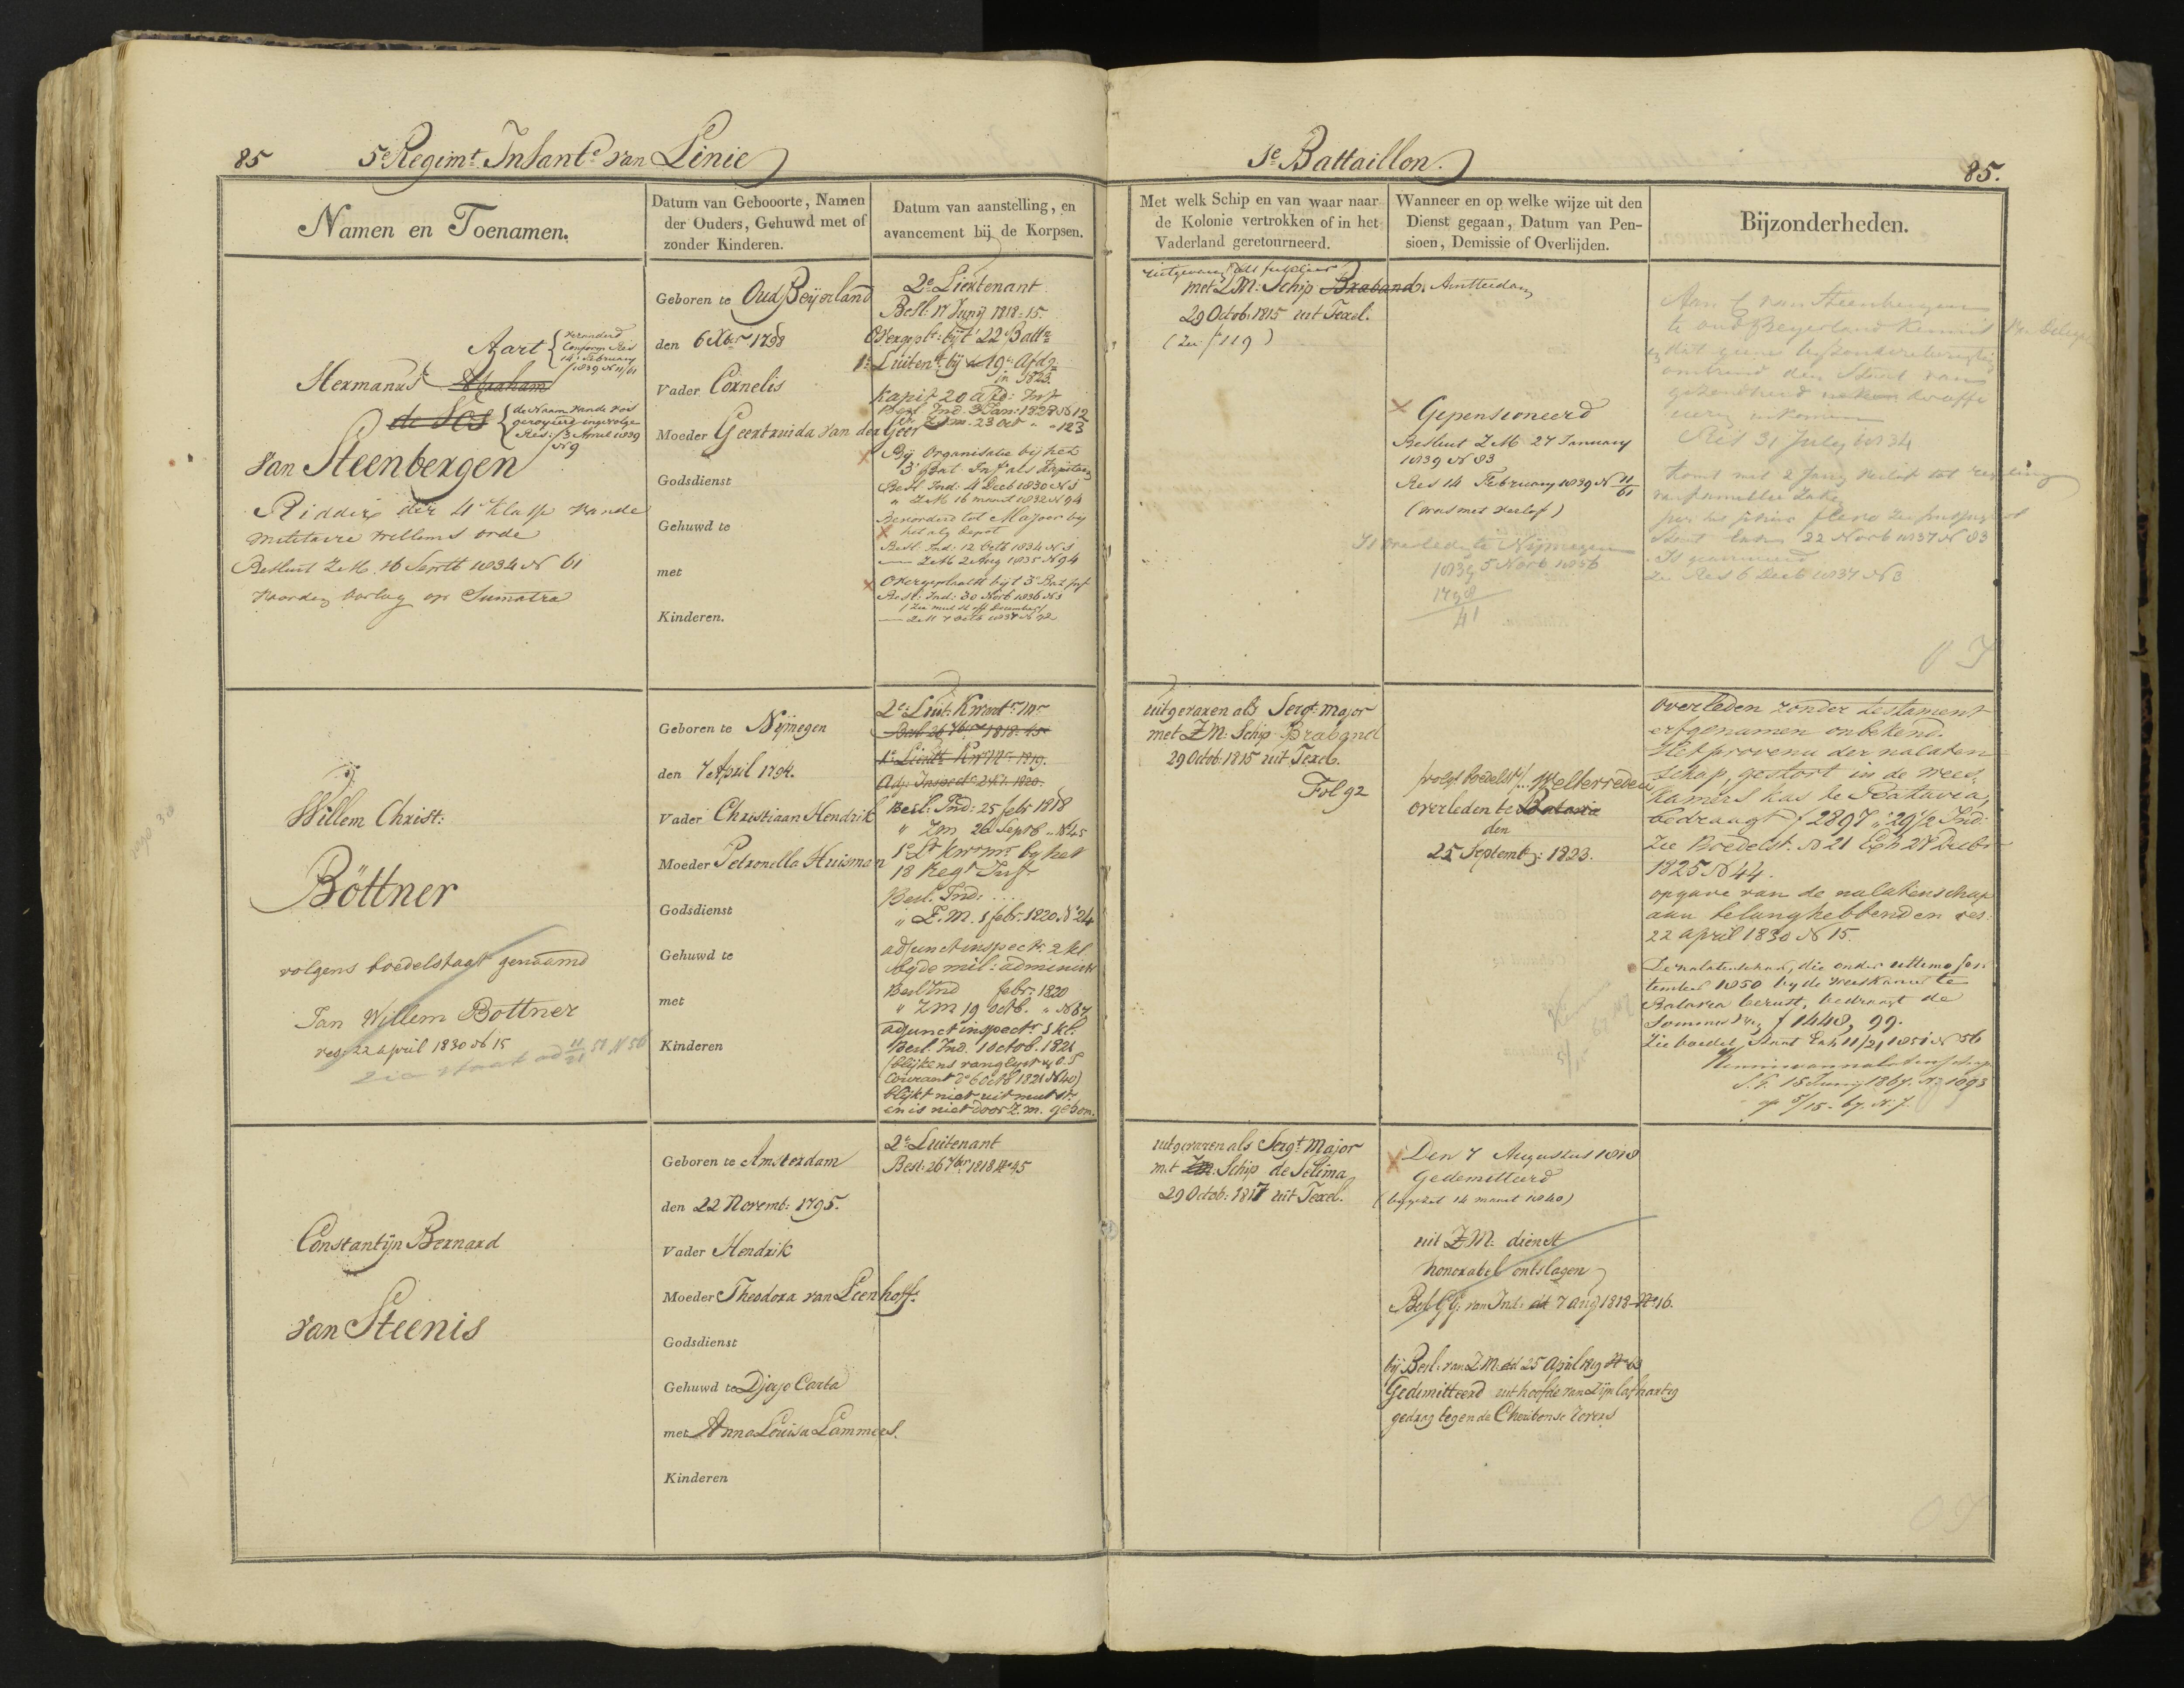 85
5e Regimt. Infante. van Linie
1e Battaillon.
85.
Namen en Toenamen.
Datum van Gebooorte, Namen
der Ouders, Gehuwd met of
zonder Kinderen.
Datum van aanstelling, en
avancement bij de Korpsen.
Met welk Schip en van waar naar
de Kolonie vertrokken of in het
Vaderland geretourneerd.
Wanneer en op welke wijze uit den
Dienst gegaan, Datum van Pen-
sioen, Demissie of Overlijden.
Bijzonderheden.
Aart { veranderd
Conform Res
14 February
1839 N 11/61
Hermanus Abraham
de Vos { de Naam van de Vos
geroyeerd ingevolge
Res: 3 April 1839
N 9
van Steenbergen
Ridder der 4e Klasse van de
Militaire Willems orde
Besluit ZM. 16 Septb 1834 N 61
Geboren te Oud Beijerland
den 6 Xber 1798
Vader Cornelis
Moeder Geertruida van der Geer
Godsdienst
Gehuwd te
met
Kinderen.
2e Lieutenant
Besl: 17 Junij 1818: 15.
Overgepl: bij t 22e Batte
1e Luitent. bij de 19e Afdg
in 1823.
Kapit 20 afd: Inf
Besl Ind: 3 Jan: 1828 N 12
" Z.M. 23 Oct " " 123
Bij Organisatie bij het
3e Bat Inf als
Besl Ind: 4 Decb 1830 N 1
" ZM 16 maart 1832 N 94
Bevorderd tot Majoor bij
het alg depot
Besl. Ind: 12 Octb 1834 N 1
— ZM 2 Aug 1835 N 94
Overgeplaatst bij t 3e Bat Inf
Besl: Ind: 30 Novb 1836 N 3
met ZM: Schip Braband. Amsterdam
29 Octob: 1815 uit Texel.
(Zie f 119)
Gepensioneerd
Besluit ZM 27 January
1839 N 83
Res 14 February 1839 N 11/61
(was met verlof)
Is overleden te Nijmegen
5 Novb 1856
1839
1798
41
Aan van Steenbergen
te oud Beyerland
Res 31 July 1834
22 Novb 1837 N 83
Zie Res 6 Decb 1837 N 3
Willem Christ:
Böttner
volgens boedelstaat genaamd
Jan Willem Bottner
res: 22 april 1830 N 15
Geboren te Nijmegen
den 7 April 1794.
Vader Christiaan Hendrik
Moeder Petronella Huisman
Godsdienst
Gehuwd te
met
Kinderen
2e: Luit: Kwartr. Mr
Besl 26 7ber 1818. 45
1e Lieut: Kw Mr 1819.
Adj: Inspectr 2 Kl. 1820.
Besl: Ind: 25 febr 1818
" ZM 26 Septb " N 45
1e Lt Kwrmr by het
18 Regt Inf
Besl. Ind: ....
" Z.M. 1 febr. 1820 N 24
adjunct inspectr. 2 kl.
by de mil: administr
Besl Ind febr: 1820
" ZM 19 octb. " N 67
adjunct inspectr 1 kl.
Besl. Ind. 1 octob. 1821
(blijkens ranglyst
Courant de 6 Octb 1821 N 40)
blijkt niet uit mut st.
en is niet door Z.M. geb om.
uitgevaren als Sergt. major
met ZM. Schip Braband
29 Octob: 1815 uit Texel.
Fol 92
volgs boedelst. Welterreden
overleden te Batavia
den
25 Septemb: 1823.
overleden zonder testament
erfgenamen onbekend.
Het provenu der nalaten
schap, gestort in de wees
kamers kas te Batavia,
bedraagt f 2897 " 29 1/2 Ind:
Zie Boedelst. N 21 Exh 27 Decbr
1825 N 44.
opgave van de nalatenschap
aan belanghebbenden res:
22 april 1830 N 15.
De nalatenschap, die onder ultimo Sep
tember 1850 by de weeskamer te
Batavia berust, bedraagt de
Somma van f 1448, 99.
Zie boedel Staat Exh 11/21 1851 N 56
15 Junij 1867. N 1093
Constantijn Bernard
van Steenis
Geboren te Amsterdam
den 22 Novemb: 1795.
Vader Hendrik
Moeder Theodora van Leenhoff:
Godsdienst
Gehuwd te Djojo Carta
met Anna Louisa Lammers.
Kinderen
2e Luitenant
Besl: 26 7ber 1818 No 45
uitgevaren als Sergt Major
met ZM: Schip de Selima
29 Octob: 1817 uit Texel.
Den 7 Augustus 1818
Gedemitteerd
(bygezet 14 maart 1840)
uit ZM: dienst
honorabel ontslagen
Besl GG: van Ind: dd 7 aug 1818 No 16.
bij Besl: van Z M. dd 25 April 1819 No 63
Gedemitteerd uit hoofde van Zijn lafhartig
gedrag tegen de Cheribonse